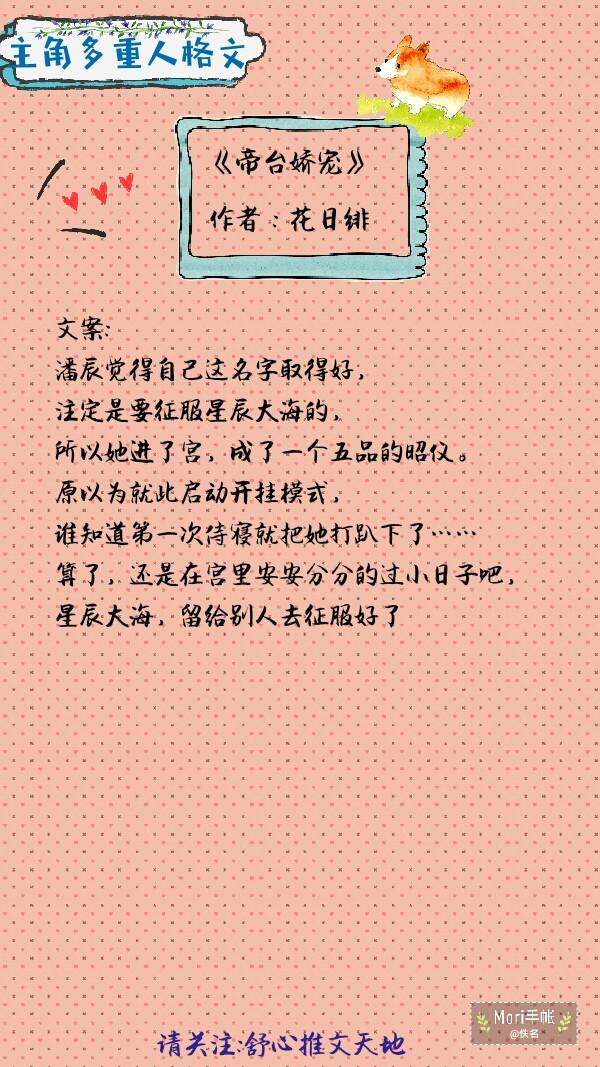 主角多重人格文
《帝台娇宠》
作者：花日绯
文案:
潘辰觉得自己这名字取得好，
注定是要征服星辰大海的，
所以她进了宫，成了一个五品的昭仪。
原以为就此启动开挂模式，
谁知道第一次侍寝就把她打趴下了……
算了，还是在宫里安安分分的过小日子吧，
星辰大海，留给别人去征服好了
Mori手帐
@佚名
请关注:舒心推文天地